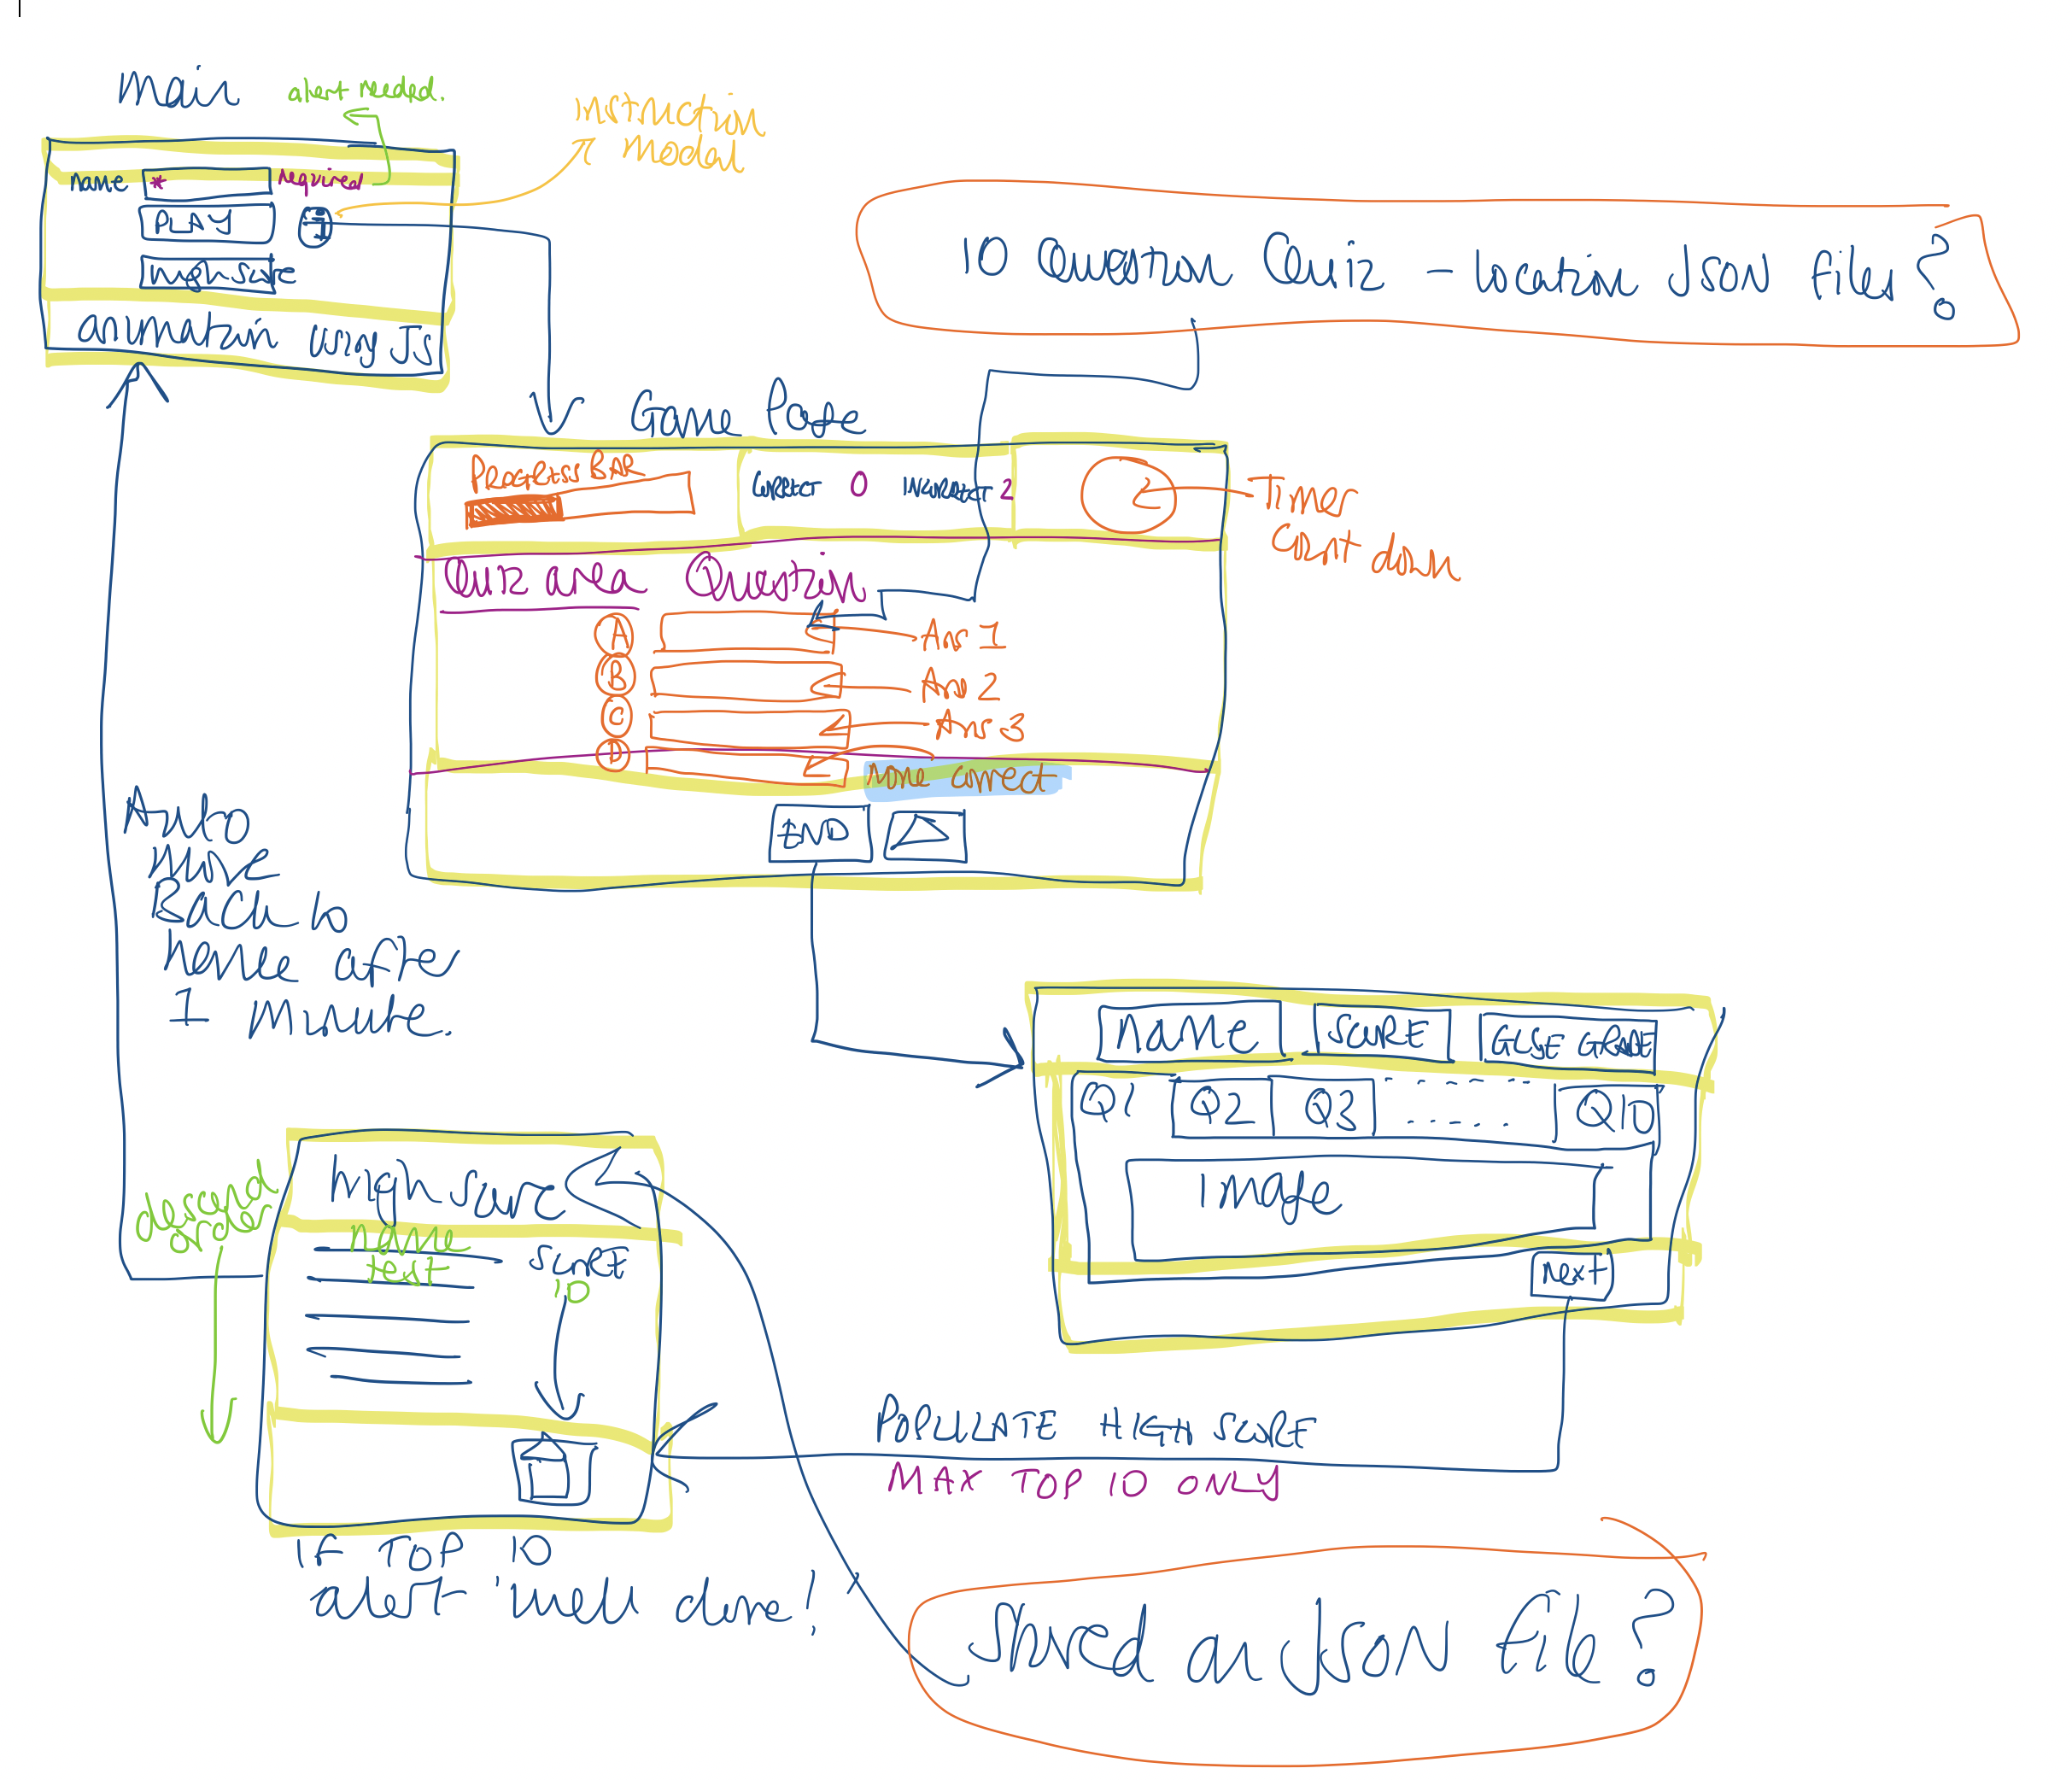 Main
alert needed.
Instruction
Modal
Name * required
PLAY i
high score
animation using JS
10 Question Quiz - location JSON files?
Game Page
PROGRESS BAR
CORRECT 0 INCORRECT 2
2
Timer
Count down
Quiz area Question
A Ans 1
B Ans 2
C Ans 3
D None correct
END
Auto
move
Back to
home after
1 minute.
NAME SCORE GCSE GRADE
Q1 Q2 Q3 ..... Q10
Image
Next
high score
descend
order
name SCORE
test 10
POPULATE HIGH SCORE
MAX TOP 10 ONLY
IF TOP 10
alert 'well done!'
Stored on JSON file?